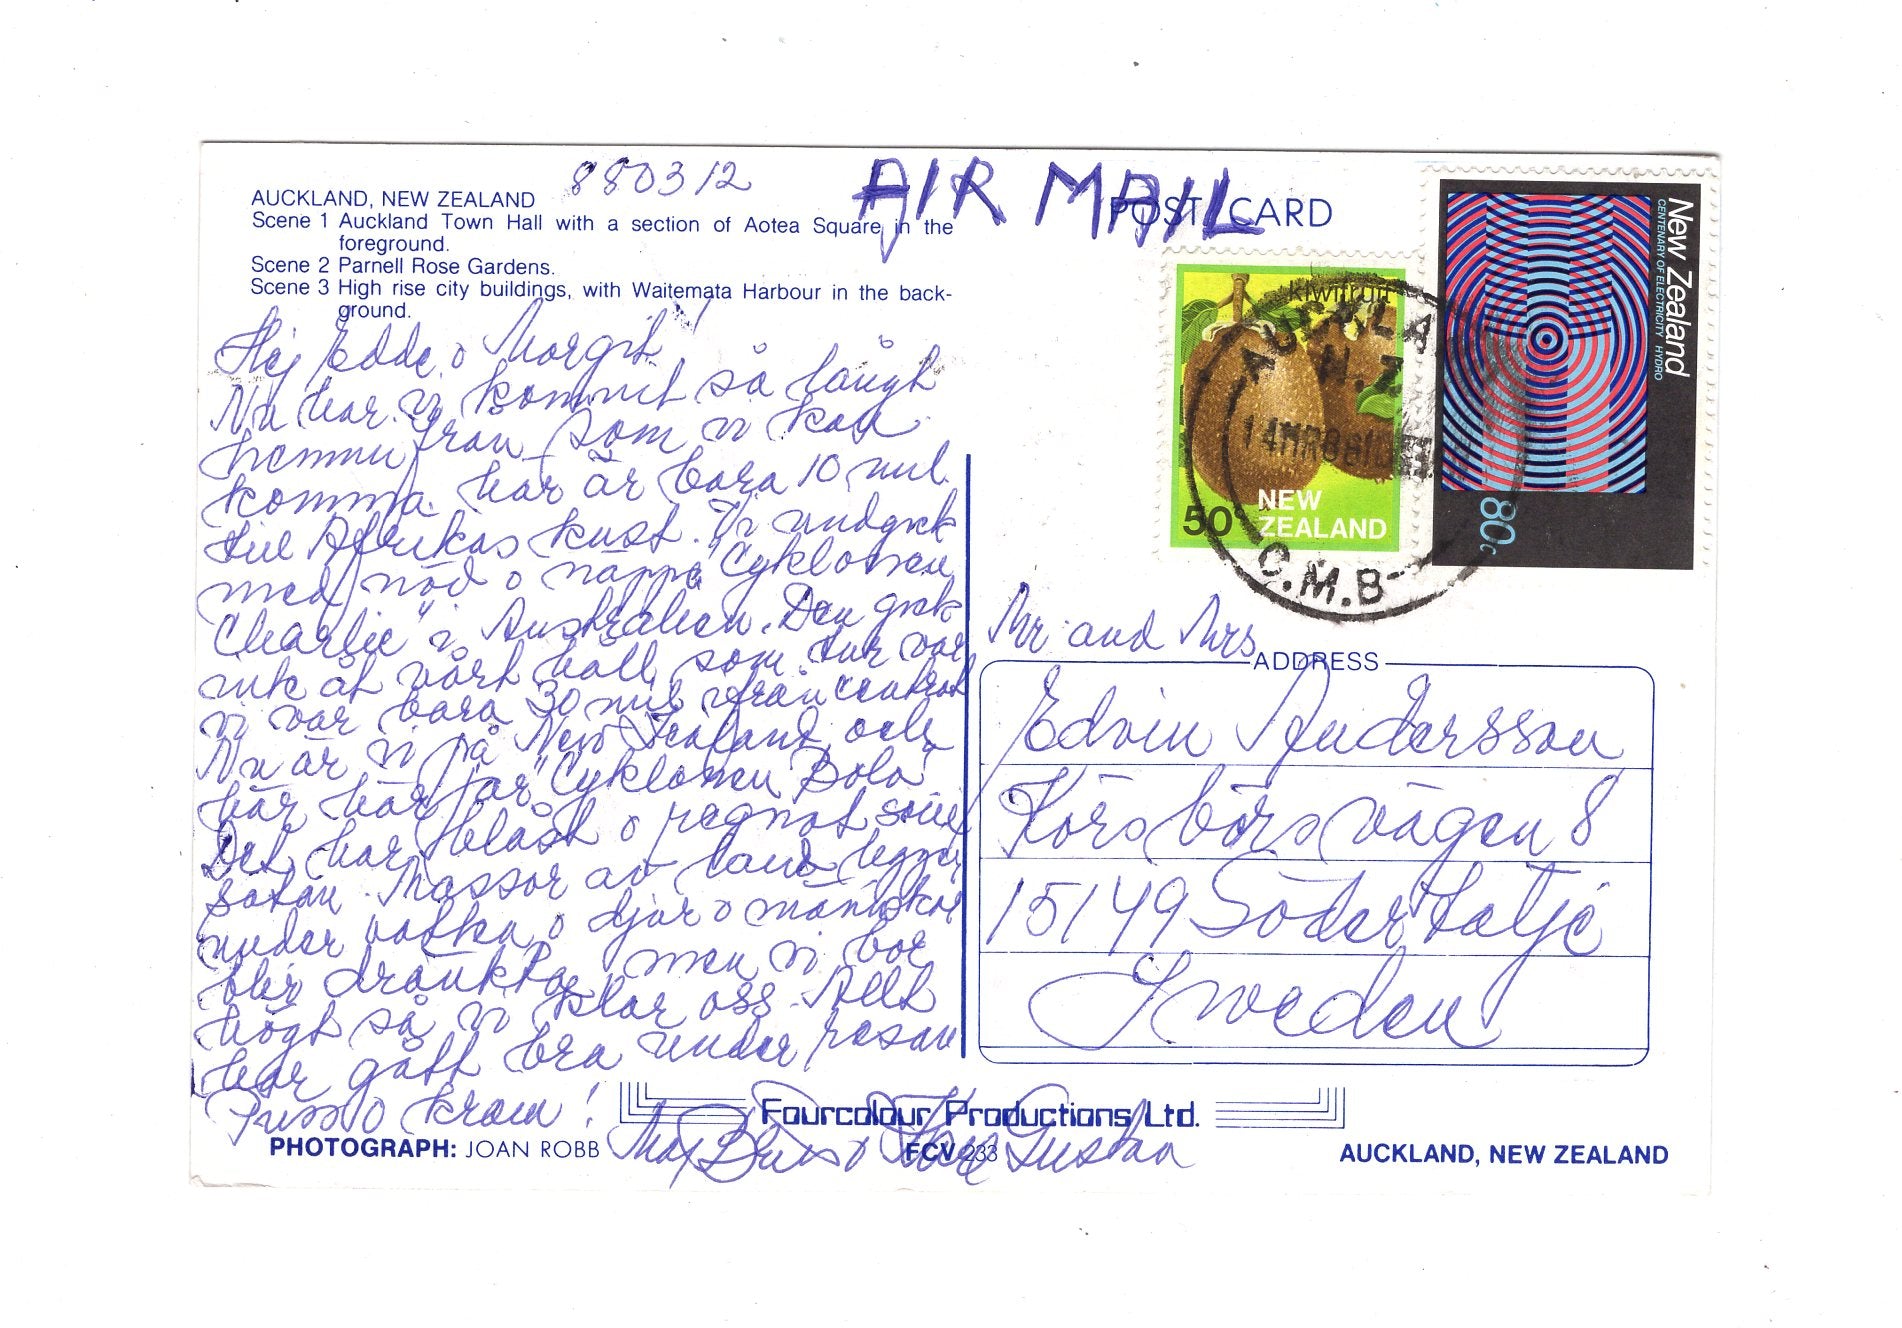 880312
AIR MAIL
POST CARD
AUCKLAND, NEW ZEALAND
Scene 1 Auckland Town Hall with a section of Aotea Square in the
foreground.
Scene 2 Parnell Rose Gardens.
Scene 3 High rise city buildings, with Waitemata Harbour in the back-
ground.
Hej Edde o Margit!
Nu har vi kommit så långt
hemmifrån som vi kan
komma. här är bara 10 mil
till Afrikas kust. Vi undgick
med nöd o näppe "Cyklonen
Charlie" i Australien. Den gick
mk åt vårt håll, som tur var
vi var bara 30 mil ifrån centrat
Nu är vi på New Zealand och
här härjar "Cyklonen Bola"
Det har blåst o regnat som
satan. Massor av land ligger
under vatten o djur o människor
blir dränkta, men vi bor
högt så vi klar oss. Allt
har gått bra under resan
Puss o kram!
Maj Britt o Gustav
kiwifruit
50c
NEW
ZEALAND
New Zealand
CENTENARY OF ELECTRICITY HYDRO
80c
N.Z.
C.M.B
Mr and Mrs
ADDRESS
Edvin Andersson
Körsbärsvägen 8
15149 Södertälje
Sweden
Fourcolour Productions Ltd.
PHOTOGRAPH: JOAN ROBB
FCV 233
AUCKLAND, NEW ZEALAND